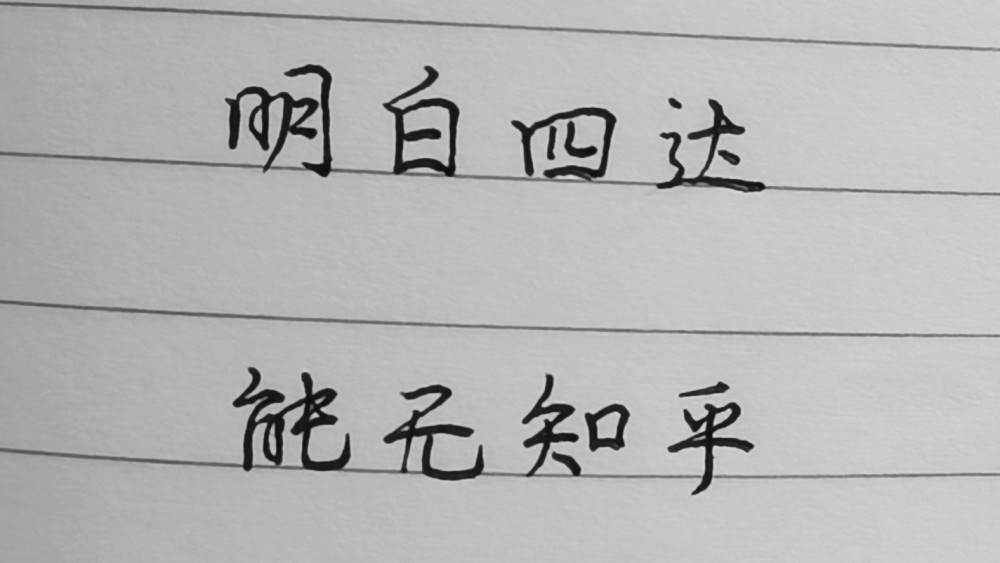 明白四达
能无知乎